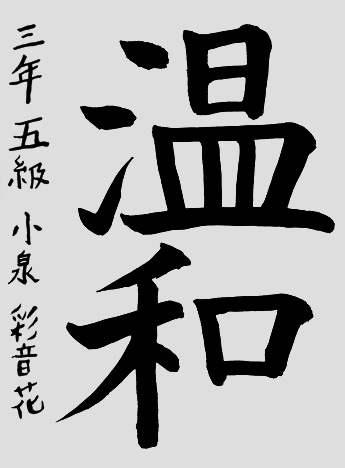 温和
三年 五級 小泉 彩音花